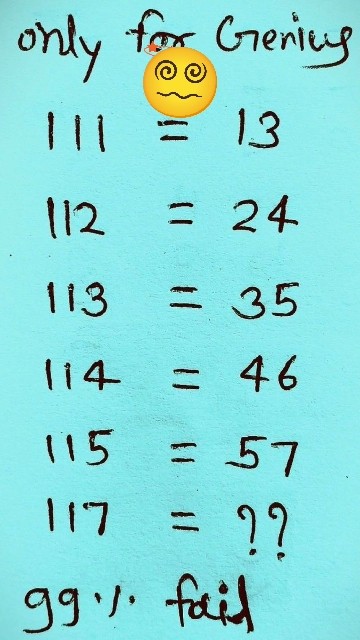 only for Genius
111 = 13
112 = 24
113 = 35
114 = 46
115 = 57
117 = ??
99% faid